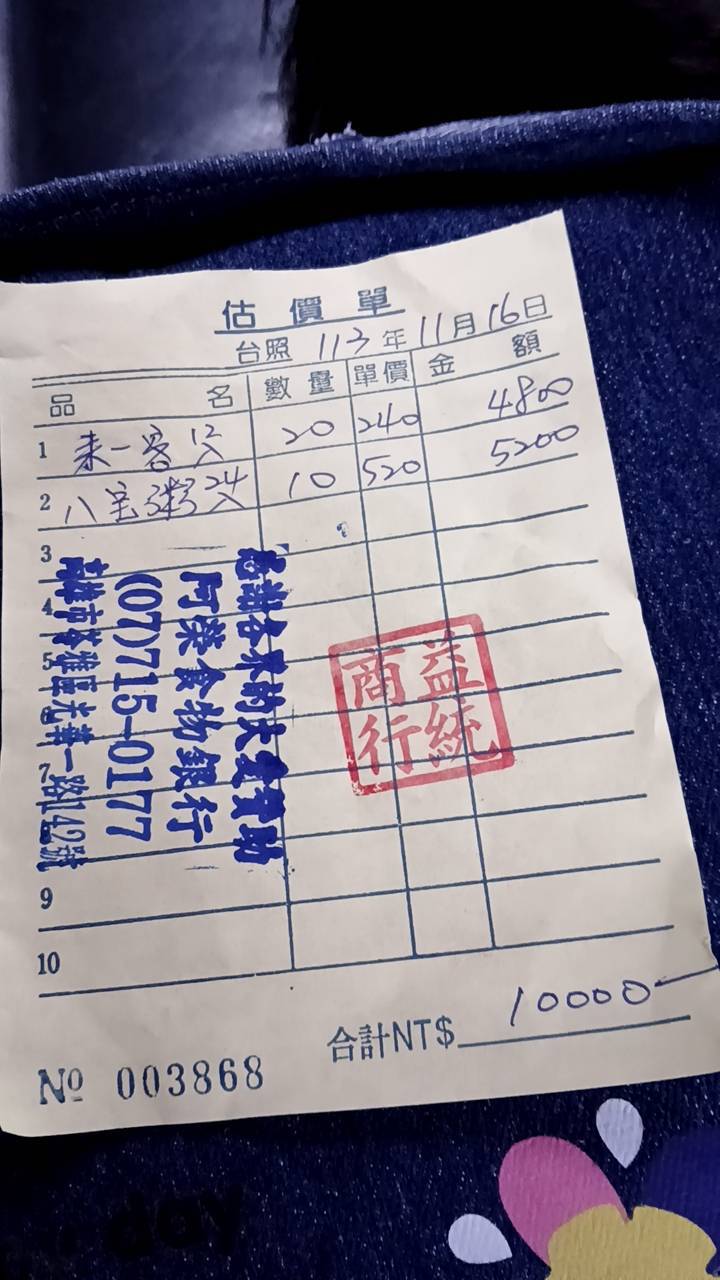 估價單
台照 113年11月16日
品名 數量 單價 金額
1 來一客 12入 20 240 4800
2 八宝粥 24入 10 520 5200
3
4
5
7
9
10
感謝各界的大愛贊助
阿榮食物銀行
(07)715-0177
高雄市苓雅區光華一路142號
益統
商行
合計NT$ 10000
Nº 003868
day